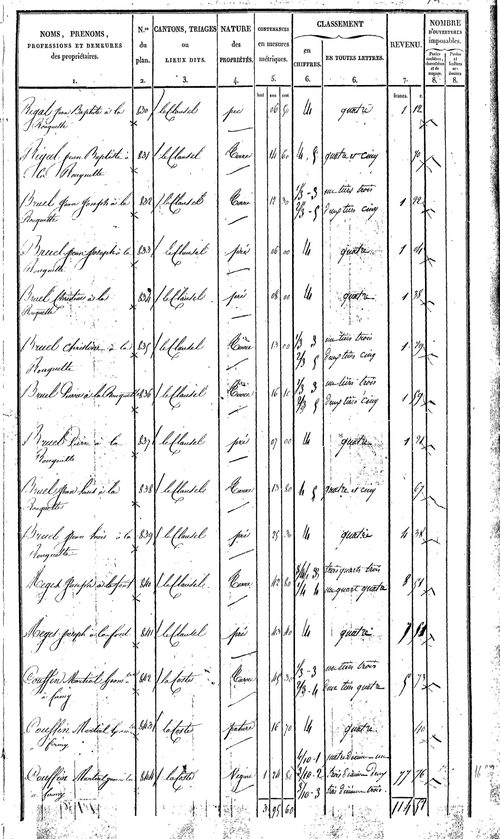 NOMS, PRENOMS, PROFESSIONS ET DEMEURES des propriétaires.
N.os du plan.
CANTONS, TRIAGES OU LIEUX DITS.
NATURE des PROPRIÉTÉS.
CONTENANCES en mesures métriques.
CLASSEMENT
en CHIFFRES.
EN TOUTES LETTRES.
REVENU.
NOMBRE D'OUVERTURES imposables.
1. 2. 3. 4. 5. 6. 6. 7. 8. 8.
francs. c.
Rigal jean Baptiste à la 830 le Clausel pré 06 50 4 quatre 1 12
Rouquette
Rigal jean Baptiste à 831 le Clausel Terre 14 60 4, 5 quatre et cinq 70
la Rouquette
Bruel jean joseph à la 832 le Clausel Terre 12 30 1/3 - 3 un tiers trois 1 22
Rouquette 2/3 - 5 deux tiers cinq
Bruel jean joseph à la 833 le Clausel pré 06 00 4 quatre 1 04
Rouquette
Bruel Christine à la 834 le Clausel pré 08 00 4 quatre 1 38
Rouquette
Bruel Christine à la 835 le Clausel Terre 13 00 1/3 3 un tiers trois 1 29
Rouquette 2/3 5 deux tiers cinq
Bruel Pierre à la Rouquette 836 le Clausel Terre 16 10 1/3 3 un tiers trois 1 59
2/3 5 deux tiers cinq
Bruel Pierre à la 837 le Clausel pré 07 00 4 quatre 1 21
Rouquette
Bruel jean Louis à la 838 le Clausel Terre 13 80 4 5 quatre et cinq 67
Rouquette
Bruel jean Louis à la 839 le Clausel pré 25 30 4 quatre 4 38
Rouquette
Meges joseph à lafont 840 le Clausel Terre 42 80 3/4 3 trois quarts trois 8 51
1/4 4 un quart quatre
Meges joseph à lafont 841 le Clausel pré 43 40 4 quatre 7
Couffin Martial 842 la Coste Terre 45 30 1/3 - 3 un tiers trois 5 73
2/3 - 4 deux tiers quatre
Couffin Martial 843 la Coste pature 16 70 4 quatre 40
Couffin Martial 844 la Coste Vigne 1 24 6/10 - 1 77 76
2/10 - 2
2/10 - 3
3 95 60 114 51